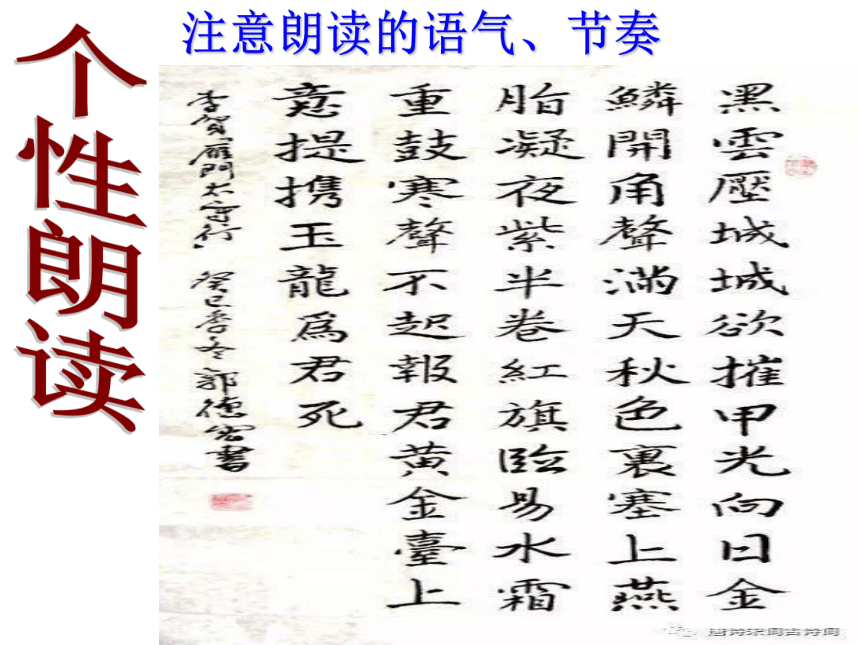 注意朗读的语气、节奏
个性朗读
黑雲壓城城欲摧甲光向日金
鱗開角聲滿天秋色裏塞上燕
脂凝夜紫半卷紅旗臨易水霜
重鼓寒聲不起報君黄金臺上
意提携玉龍爲君死
李賀雁門太守行 癸巳季冬郭德宏書
唐诗宋词古诗词